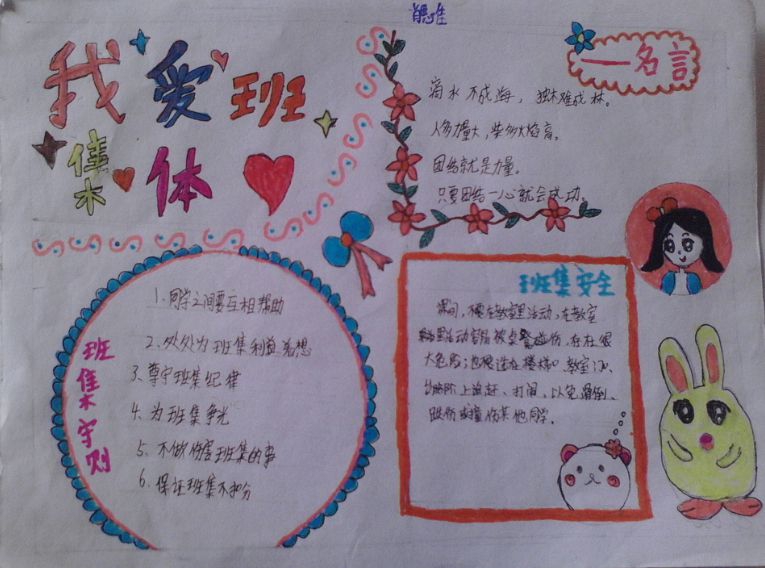 我爱班
集体
一名言
滴水不成海，独木难成林。
人多力量大，柴多火焰高。
团结就是力量。
只要团结一心就会成功。
班集守则
1、同学之间要互相帮助
2、处处为班集利益着想
3、尊守班集纪律
4、为班集争光
5、不做伤害班集的事
6、保证班集不扣分
班集安全
课间，不要在教室里活动，在教室
里活动容易被桌凳碰伤，存在很
大危险；也不要在楼梯口、教室门口、
台阶上追赶、打闹，以免滑倒、
跌伤或撞伤其他同学。